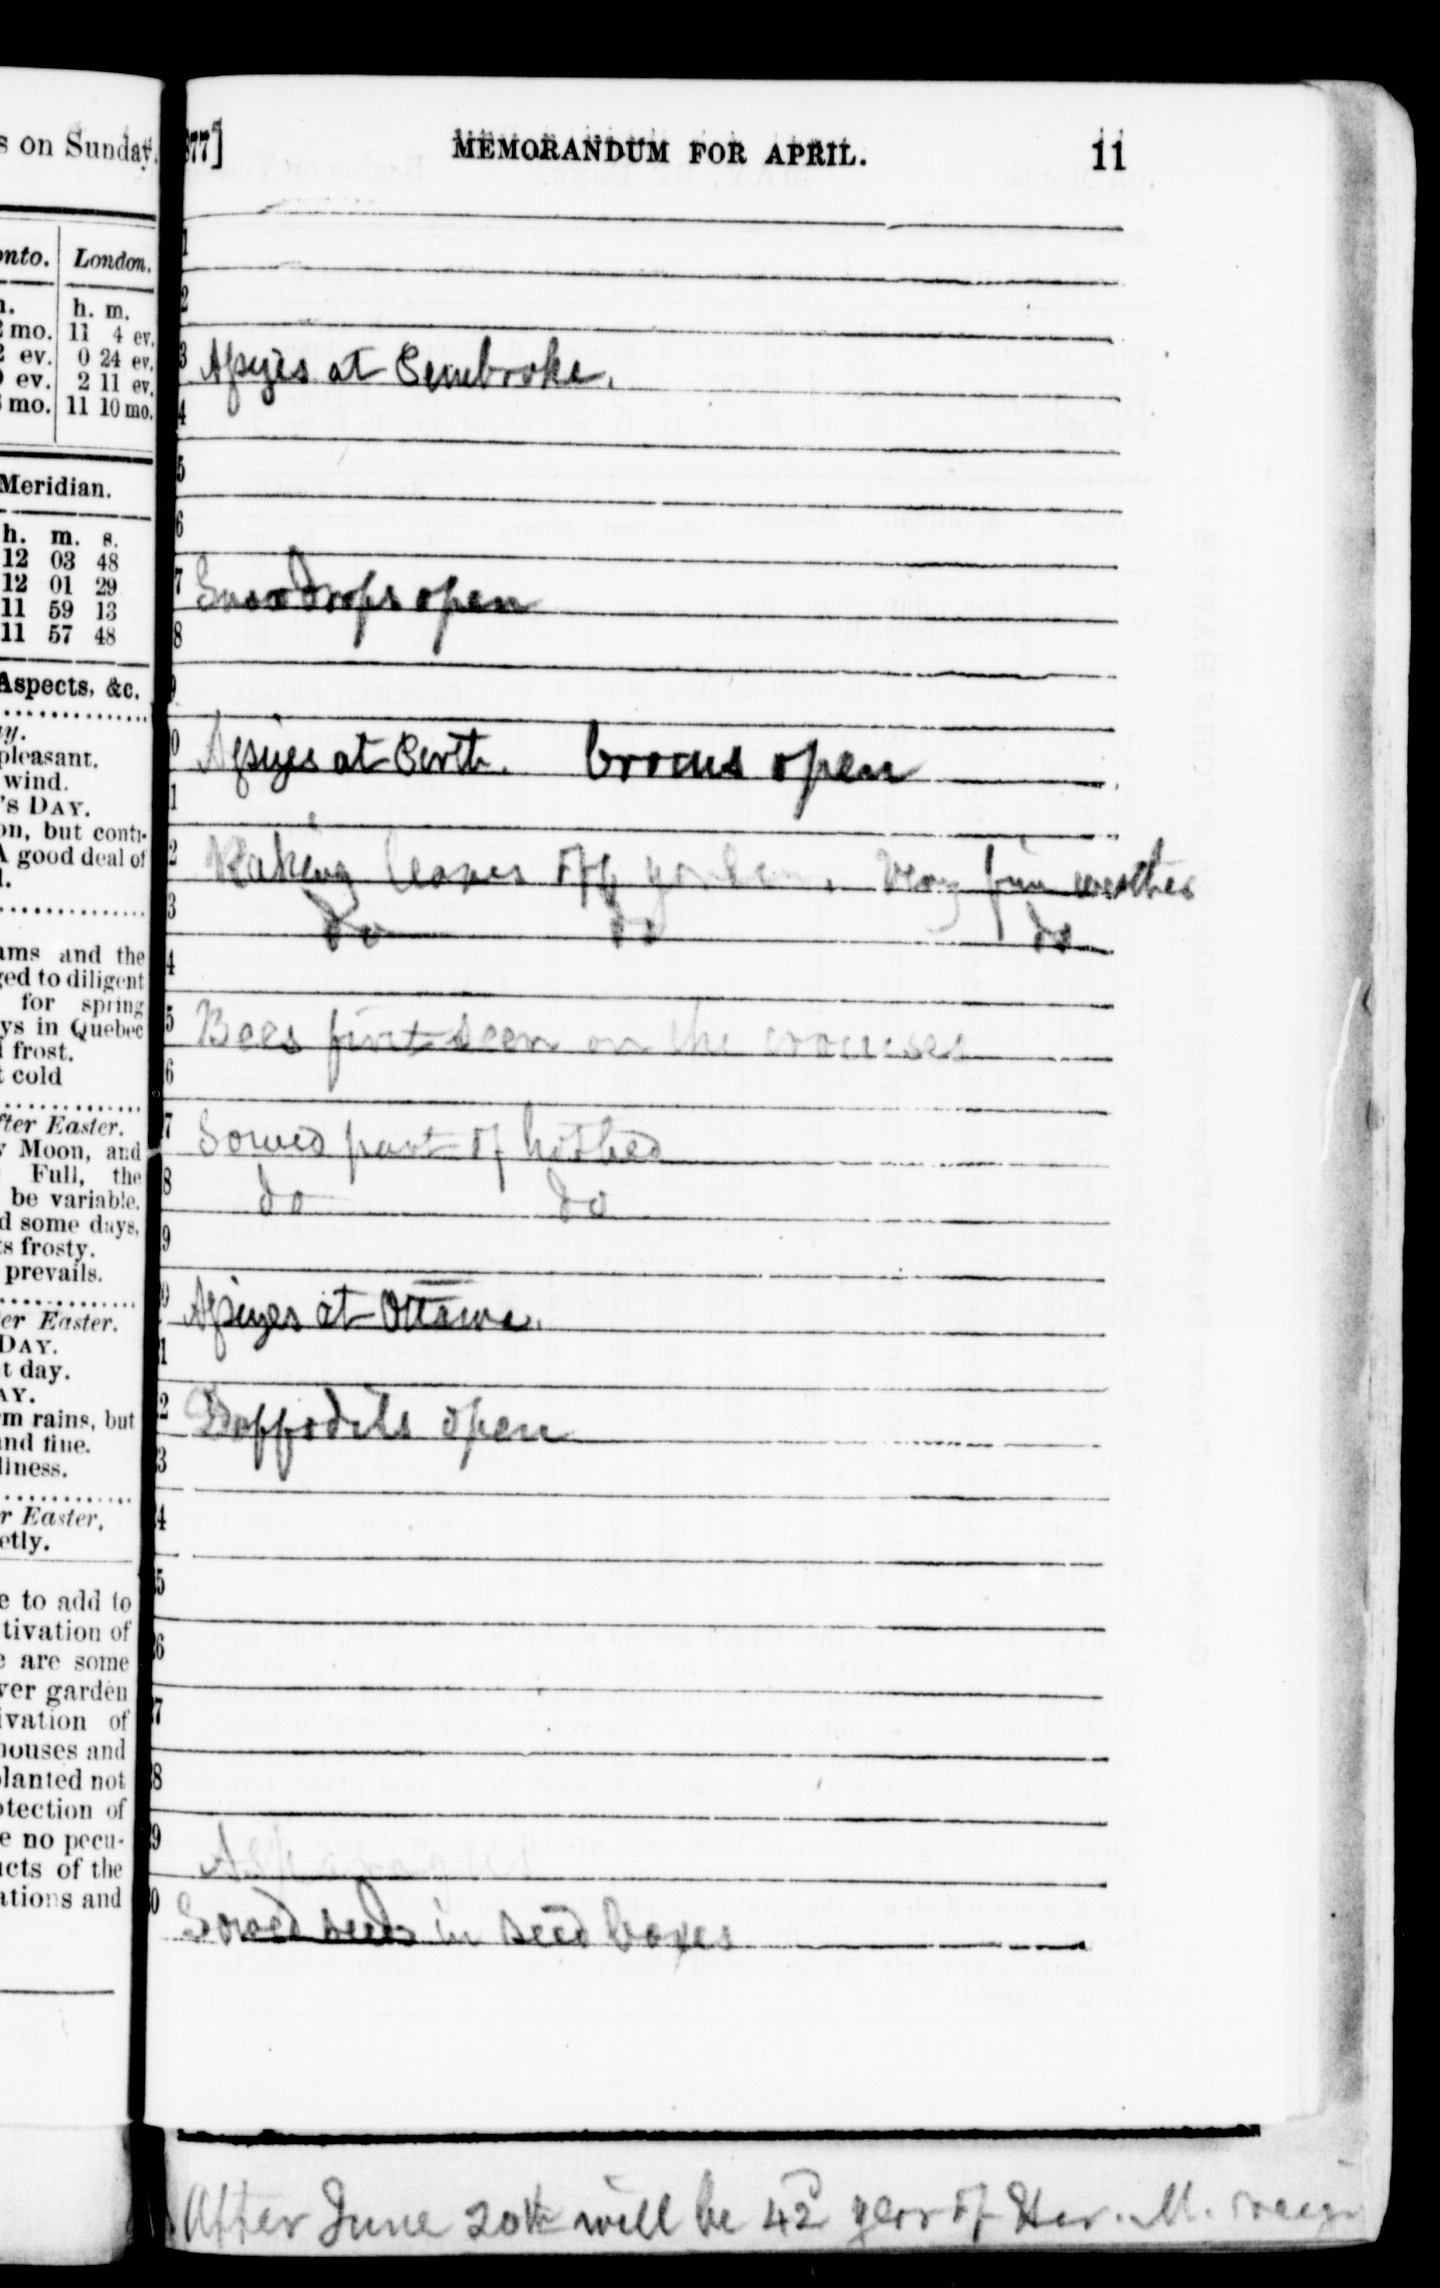 s on Sunday.
onto. London.
h. m.
mo. 11 4 ev.
ev. 0 24 ev.
ev. 2 11 ev.
mo. 11 10 mo.
Meridian.
h. m. s.
12 03 48
12 01 29
11 59 13
11 57 48
Aspects, &c.
y.
pleasant.
wind.
's DAY.
on, but conti-
A good deal of
ams and the
ged to diligent
for spring
ys in Quebec
frost.
t cold
fter Easter.
Moon, and
Full, the
be variable.
d some days,
ts frosty.
prevails.
er Easter.
DAY.
t day.
AY.
rm rains, but
and fine.
liness.
r Easter,
etly.
e to add to
tivation of
e are some
ver garden
ivation of
houses and
planted not
otection of
e no pecu-
ucts of the
ations and
77] MEMORANDUM FOR APRIL. 11
1
2
3 Assizes at Pembroke.
4
5
6
7 Snowdrops open
8
9
0 Assizes at Perth. Crocus open
1
2 Raking leaves off garden. Very fine weather
3 do do do
4
5 Bees first seen on the crocuses
6
7 Sowed part of hotbed
8 do do
9
0 Assizes at Ottawa.
1
2 Daffodils open
3
24
5
26
27
28
29 Asparagus
30 Sowed seeds in seed boxes
After June 20th will be 42d year of Her. M. reign